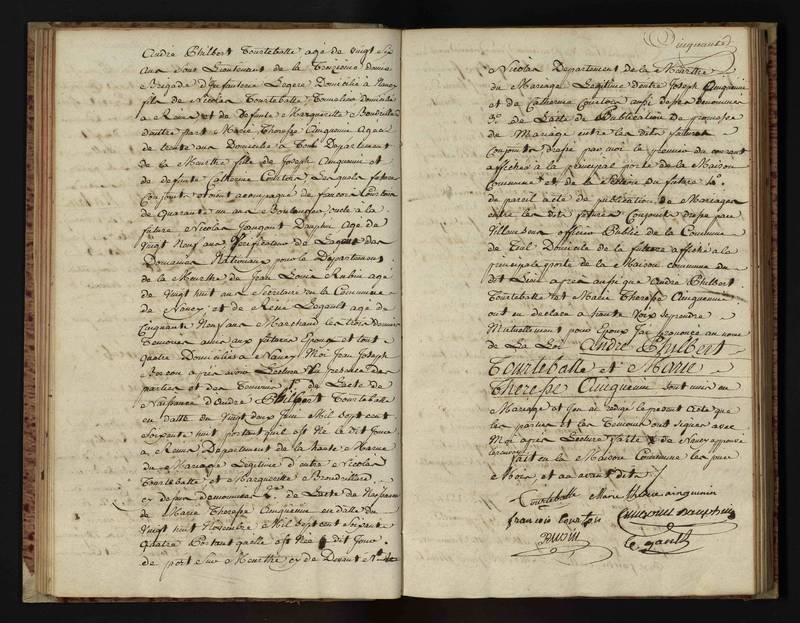 André Philbert Tourteballe agé de vingt six
ans sous Lieutenant de la Treizieme demie
Brigade d'Infanterie Legere Domicilié à Nancy
fils de Nicolas Tourteballe Tonnelier Domicilié
a Reims et de defunte Marguerite Boudrillard
d'autre part Marie Therese Cinquenin Agée
de trente ans Domicilié à Toul Département
de la Meurthe fille de Joseph Cinquenin et
de defunte Catherine Courtois Lesquels futurs
Conjoints etoient accompagné de francois Courtois
de Quarante un ans Boulanger oncle à la
future Nicolas Dauphin Age de
vingt Neuf ans Verificateur de des
Domaines Nationau pour le Département
de la Meurthe de Jean Louis Rubin agé
de vingt huit ans Secretaire en la Commune
de Nancy et de René Legault agé de
Cinquante Neuf ans Marchand les trois dernier
Temoins amis aux futures Epoux et tout
quatre Domiciliés à Nancy Moi Jean Joseph
apres avoir Lecture en presence des
parties et des Temoins 1° de L'acte de
Naissance d'André Philbert Tourteballe
en datte du vingt deux Juin Mil Sept cent
soixante huit portant qu'il est Né le dit Jour
a Reims Departement de la haute Marne
du Mariage Légitime d'entre Nicolas
Tourteballe et Marguerite Boudrillard
cy dessus denommés 2° de L'acte de Naissance
de Marie Therese Cinquenin en datte du
vingt huit Novembre Mil Sept cent Soixante
quatre Portant quelle est Née le dit Jour
de port sur Meurthe cy de Devant St
Cinquante
Nicolas Departement de la Meurthe
du Mariage Legitime d'entre Joseph Cinquenin
et de Catherine Courtois aussi dessus denommés
3° de L'acte de Publication de promesse
de Mariage entre les dits futurs
Conjoints dressé par moi le premier du courant
affiché à la principal porte de la Maison
Commune et de la Section du future 4°
de pareil acte de publication de Mariages
entre les dits futurs Conjoints dressé par
Villaucourt officier Public de la Commune
de Toul Domicile de la future affiché a la
principale porte de la Maison commune du
dit Lieu apres aussi que André Philbert
Tourteballe et Marie Therese Cinquenin
ont eu declaré a haute voix se prendre
Mutuellement pour Epoux J'ai prononcé au nom
de La Loi André Philbert
Tourteballe et Marie
Therese Cinquenin sont unis en
Mariage et J'en ai redigé le present Acte que
les parties et les Temoins ont signés avec
Moi apres Lecture faite de Nancy approuvé
fait en la Maison Commune les jour
Mois et an avant dits
Tourteballe Marie thérese cinquenin
francois Courtois Dauphin
Rubin Legault